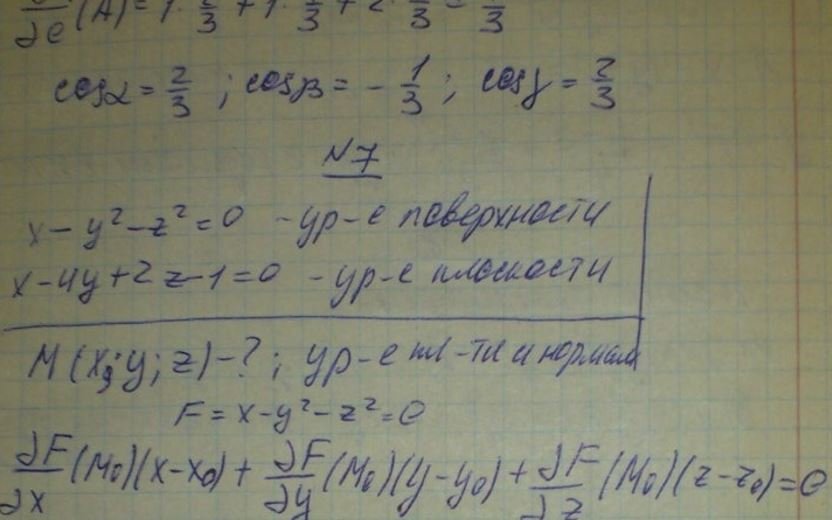 ∂/∂e (A) = 1·2/3 + 1·1/3 + 2·2/3 = 7/3
cosα = 2/3 ; cosβ = - 1/3 ; cosγ = 2/3
N7
x - y² - z² = 0 - ур-е поверхности
x - 4y + 2z - 1 = 0 - ур-е плоскости
M (x; y; z) - ? ; ур-е пл-ти и нормали
F = x - y² - z² = 0
∂F/∂x (M₀)(x - x₀) + ∂F/∂y (M₀)(y - y₀) + ∂F/∂z (M₀)(z - z₀) = 0